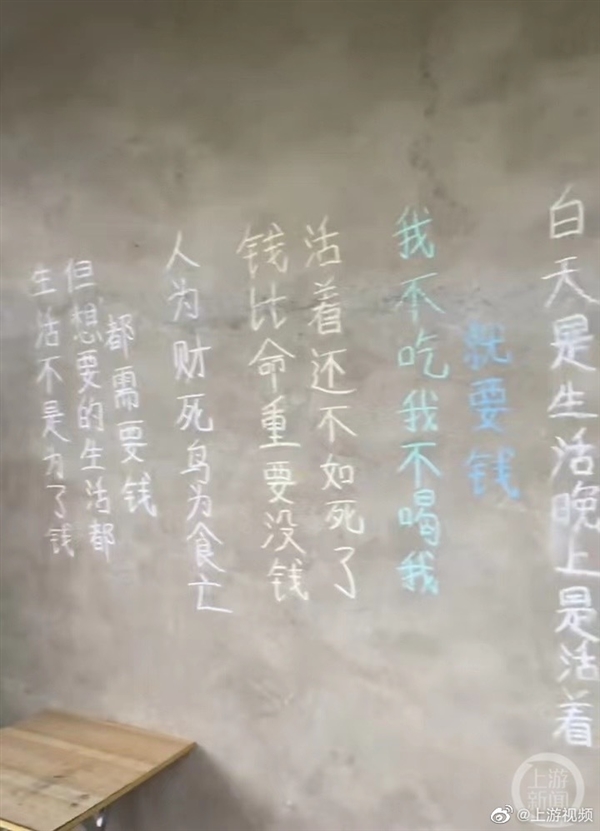 生活不是为了钱
但想要的生活都
都需要钱
人为财死鸟为食亡
钱比命重要没钱
活着还不如死了
我不吃我不喝我
就要钱
白天是生活晚上是活着
上游新闻
@上游视频